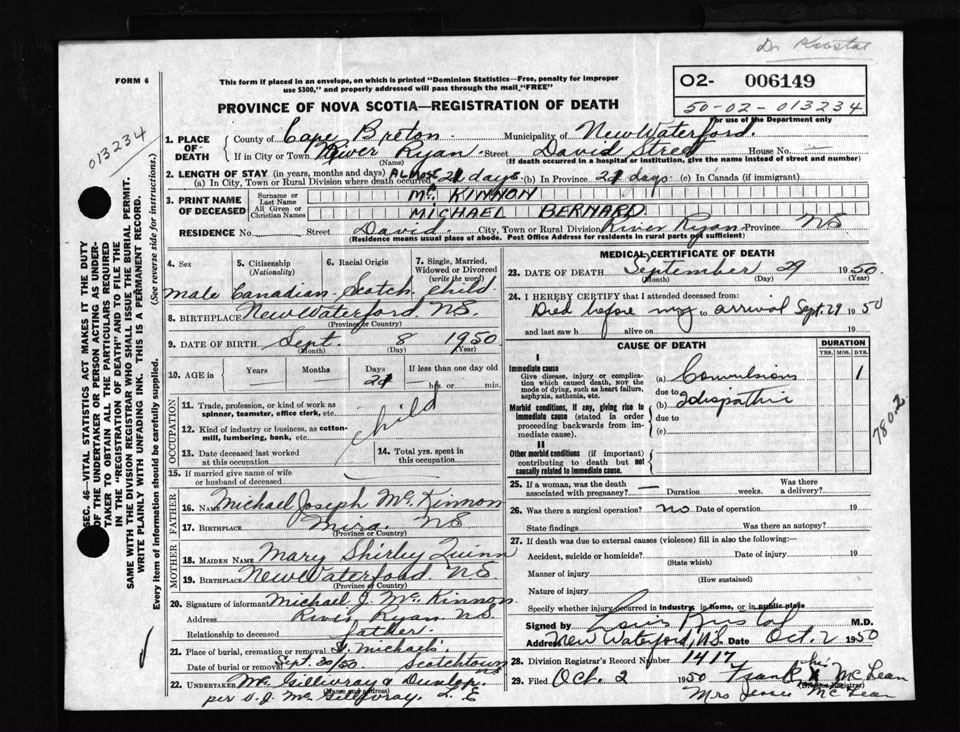 Dr Kristal
FORM 6
This form if placed in an envelope, on which is printed "Dominion Statistics—Free, penalty for improper
use $300," and properly addressed will pass through the mail "FREE"
PROVINCE OF NOVA SCOTIA—REGISTRATION OF DEATH
O2- 006149
50-02-013234
For use of the Department only
013234
SEC. 46—VITAL STATISTICS ACT MAKES IT THE DUTY
OF THE UNDERTAKER OR PERSON ACTING AS UNDER-
TAKER TO OBTAIN ALL THE PARTICULARS REQUIRED
IN THE "REGISTRATION OF DEATH" AND TO FILE THE
SAME WITH THE DIVISION REGISTRAR WHO SHALL ISSUE THE BURIAL PERMIT.
WRITE PLAINLY WITH UNFADING INK. THIS IS A PERMANENT RECORD.
Every item of information should be carefully supplied. (See reverse side for instructions.)
1. PLACE OF DEATH County of Cape Breton Municipality of New Waterford.
If in City or Town River Ryan Street David Street House No.
(Name) (If death occurred in a hospital or institution, give the name instead of street and number)
2. LENGTH OF STAY (in years, months and days) Almost
(a) In City, Town or Rural Division where death occurred 21 days (b) In Province 21 days (c) In Canada (if immigrant)
3. PRINT NAME OF DECEASED Surname or Last Name Mc KINNON
All Given or Christian Names MICHAEL BERNARD
RESIDENCE No. Street David City, Town or Rural Division River Ryan Province NS
(Residence means usual place of abode. Post Office Address for residents in rural parts not sufficient)
4. Sex 5. Citizenship (Nationality) 6. Racial Origin 7. Single, Married, Widowed or Divorced (write the word)
Male Canadian Scotch Child
8. BIRTHPLACE New Waterford NS.
(Province or Country)
9. DATE OF BIRTH Sept. 8 1950
(Month) (Day) (Year)
10. AGE in Years Months Days If less than one day old
21 hrs. or min.
OCCUPATION
11. Trade, profession, or kind of work as
spinner, teamster, office clerk, etc.
12. Kind of industry or business, as cotton-
mill, lumbering, bank, etc.
child
13. Date deceased last worked
at this occupation
14. Total yrs. spent in
this occupation
15. If married give name of wife
or husband of deceased
FATHER
16. NAME Michael Joseph Mc Kinnon
17. BIRTHPLACE Mira. NS
(Province or Country)
MOTHER
18. MAIDEN NAME Mary Shirley Quinn
19. BIRTHPLACE New Waterford NS.
(Province or Country)
20. Signature of informant Michael J. Mc Kinnon
Address River Ryan NS.
Relationship to deceased father.
21. Place of burial, cremation or removal St. Michaels.
Date of burial or removal Sept. 30/50 Scotchtown NS
22. UNDERTAKER Mc Gillivray & Dunlop
(Name and address)
per D. J. Mc Gillivray. L. E
MEDICAL CERTIFICATE OF DEATH
23. DATE OF DEATH September 29 1950
(Month) (Day) (Year)
24. I HEREBY CERTIFY that I attended deceased from:
Died before my to arrival Sept. 29 1950
and last saw h alive on 19
CAUSE OF DEATH DURATION
YRS. MOS. DYS.
I
Immediate cause
Give disease, injury or complica-
tion which caused death, NOT the
mode of dying, such as heart failure,
asphyxia, asthenia, etc.
(a) Convulsions 1
due to
(b) Idiopathic
due to
(c)
Morbid conditions, if any, giving rise to
immediate cause (stated in order
proceeding backwards from im-
mediate cause).
II
Other morbid conditions (if important)
contributing to death but not
causally related to immediate cause.
7802
25. If a woman, was the death
associated with pregnancy? — Duration weeks. Was there
a delivery?
26. Was there a surgical operation? no Date of operation 19
State findings Was there an autopsy?
27. If death was due to external causes (violence) fill in also the following:—
Accident, suicide or homicide? Date of injury 19
(State which)
Manner of injury
(How sustained)
Nature of injury
Specify whether injury occurred in industry, in home, or in public place
Signed by Louis Kristal M.D.
Address New Waterford, N.S. Date Oct. 2 1950
28. Division Registrar's Record Number 1417
29. Filed Oct. 2 1950 Frank his X McLean
(Division Registrar)
Mrs Jessie McLean